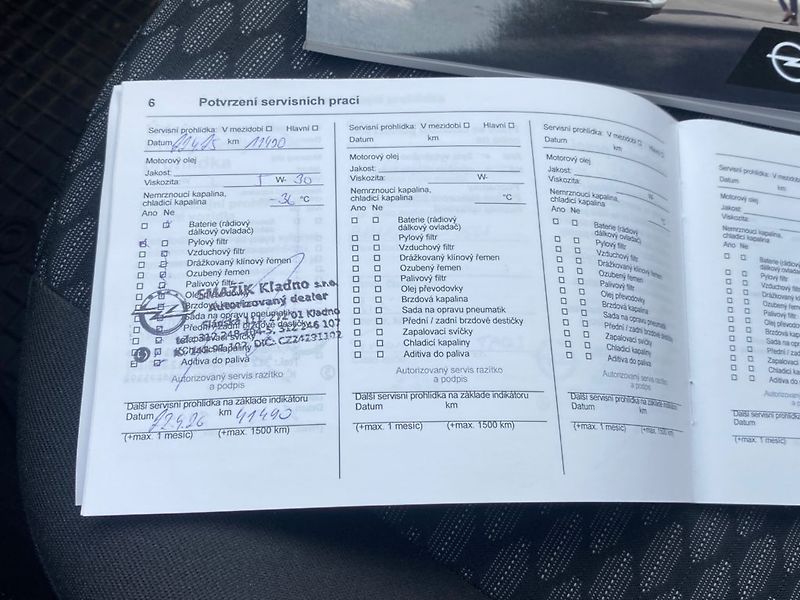 6 Potvrzení servisních prací
Servisní prohlídka: V mezidobí ☐ Hlavní ☐
Datum km 11490
Motorový olej
Jakost:
Viskozita: 5 W- 30
Nemrznoucí kapalina,
chladicí kapalina -36 °C
Ano Ne
Baterie (rádiový
dálkový ovladač)
Pylový filtr
Vzduchový filtr
Drážkový klínový řemen
Ozubený řemen
Palivový filtr
SMAZÍK Kladno s.r.o.
Autorizovaný dealer
272 01 Kladno
Sada na opravu pneumatik
Přední / zadní brzdové destičky
DIČ: CZ24291102
Aditiva do paliva
Autorizovaný servis razítko
a podpis
Další servisní prohlídka na základě indikátoru
Datum km 41490
(+max. 1 měsíc) (+max. 1500 km)
Servisní prohlídka: V mezidobí ☐ Hlavní ☐
Datum km
Motorový olej
Jakost:
Viskozita: W-
Nemrznoucí kapalina,
chladicí kapalina °C
Ano Ne
Baterie (rádiový
dálkový ovladač)
Pylový filtr
Vzduchový filtr
Drážkový klínový řemen
Ozubený řemen
Palivový filtr
Olej převodovky
Brzdová kapalina
Sada na opravu pneumatik
Přední / zadní brzdové destičky
Zapalovací svíčky
Chladicí kapaliny
Aditiva do paliva
Autorizovaný servis razítko
a podpis
Další servisní prohlídka na základě indikátoru
Datum km
(+max. 1 měsíc) (+max. 1500 km)
Servisní prohlídka: V mezidobí ☐ Hlavní ☐
Datum km
Motorový olej
Jakost:
Viskozita: W-
Nemrznoucí kapalina,
chladicí kapalina °C
Ano Ne
Baterie (rádiový
dálkový ovladač)
Pylový filtr
Vzduchový filtr
Drážkový klínový řemen
Ozubený řemen
Palivový filtr
Olej převodovky
Brzdová kapalina
Sada na opravu pneumatik
Přední / zadní brzdové destičky
Zapalovací svíčky
Chladicí kapaliny
Aditiva do paliva
Autorizovaný servis razítko
a podpis
Další servisní prohlídka na základě indikátoru
Datum km
(+max. 1 měsíc) (+max. 1500 km)
Servisní prohlídka:
Datum km
Motorový olej
Jakost:
Viskozita:
Nemrznoucí kapalina,
chladicí kapalina
Ano Ne
Baterie
dálkový
Pylový filtr
Vzduchový
Drážkový
Ozubený
Palivový filtr
Olej převodovky
Brzdová
Sada na
Přední / zadní
Zapalovací
Chladicí
Aditiva
Další servisní prohlídka
Datum
(+max. 1 měsíc)